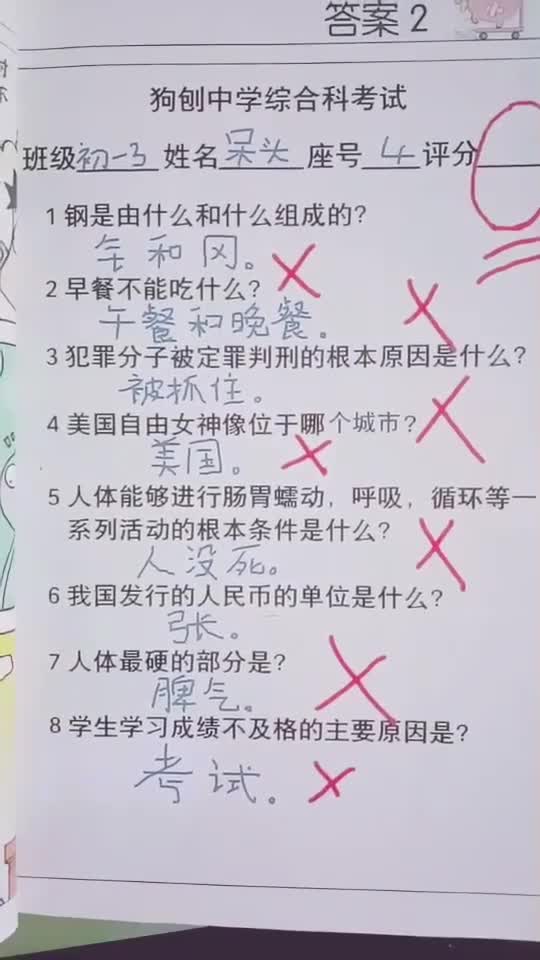 答案2
狗刨中学综合科考试
班级初一3 姓名呆头 座号4 评分
1 钢是由什么和什么组成的?
钅和冈。
2 早餐不能吃什么?
午餐和晚餐。
3 犯罪分子被定罪判刑的根本原因是什么?
被抓住。
4 美国自由女神像位于哪个城市?
美国。
5 人体能够进行肠胃蠕动，呼吸，循环等一
系列活动的根本条件是什么?
人没死。
6 我国发行的人民币的单位是什么?
张。
7 人体最硬的部分是?
脾气。
8 学生学习成绩不及格的主要原因是?
考试。